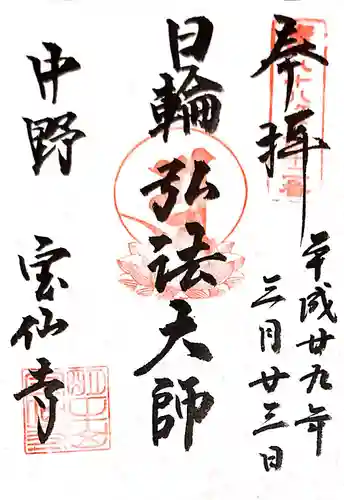 奉拝
平成廿九年
三月廿三日
日輪弘法大師
中野
宝仙寺